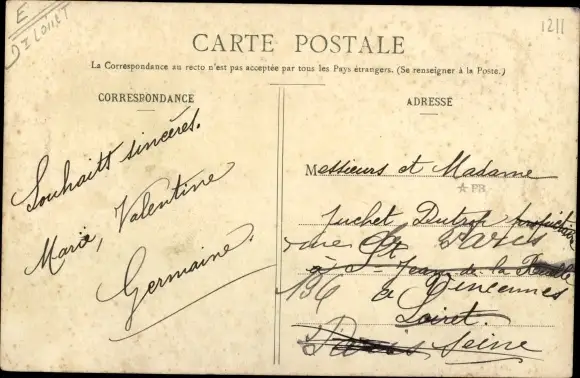 E
Dt Loiret
1211
CARTE POSTALE
La Correspondance au recto n'est pas acceptée par tous les Pays étrangers. (Se renseigner à la Poste.)
CORRESPONDANCE
ADRESSE
Souhaits sincères.
Marie, Valentine
Germaine.
Messieurs et Madame
FB
Juchet Dutrop
rue de Paris
à St Jean-de-la Ruelle
196 a Vincennes
Loiret.
Paris Seine